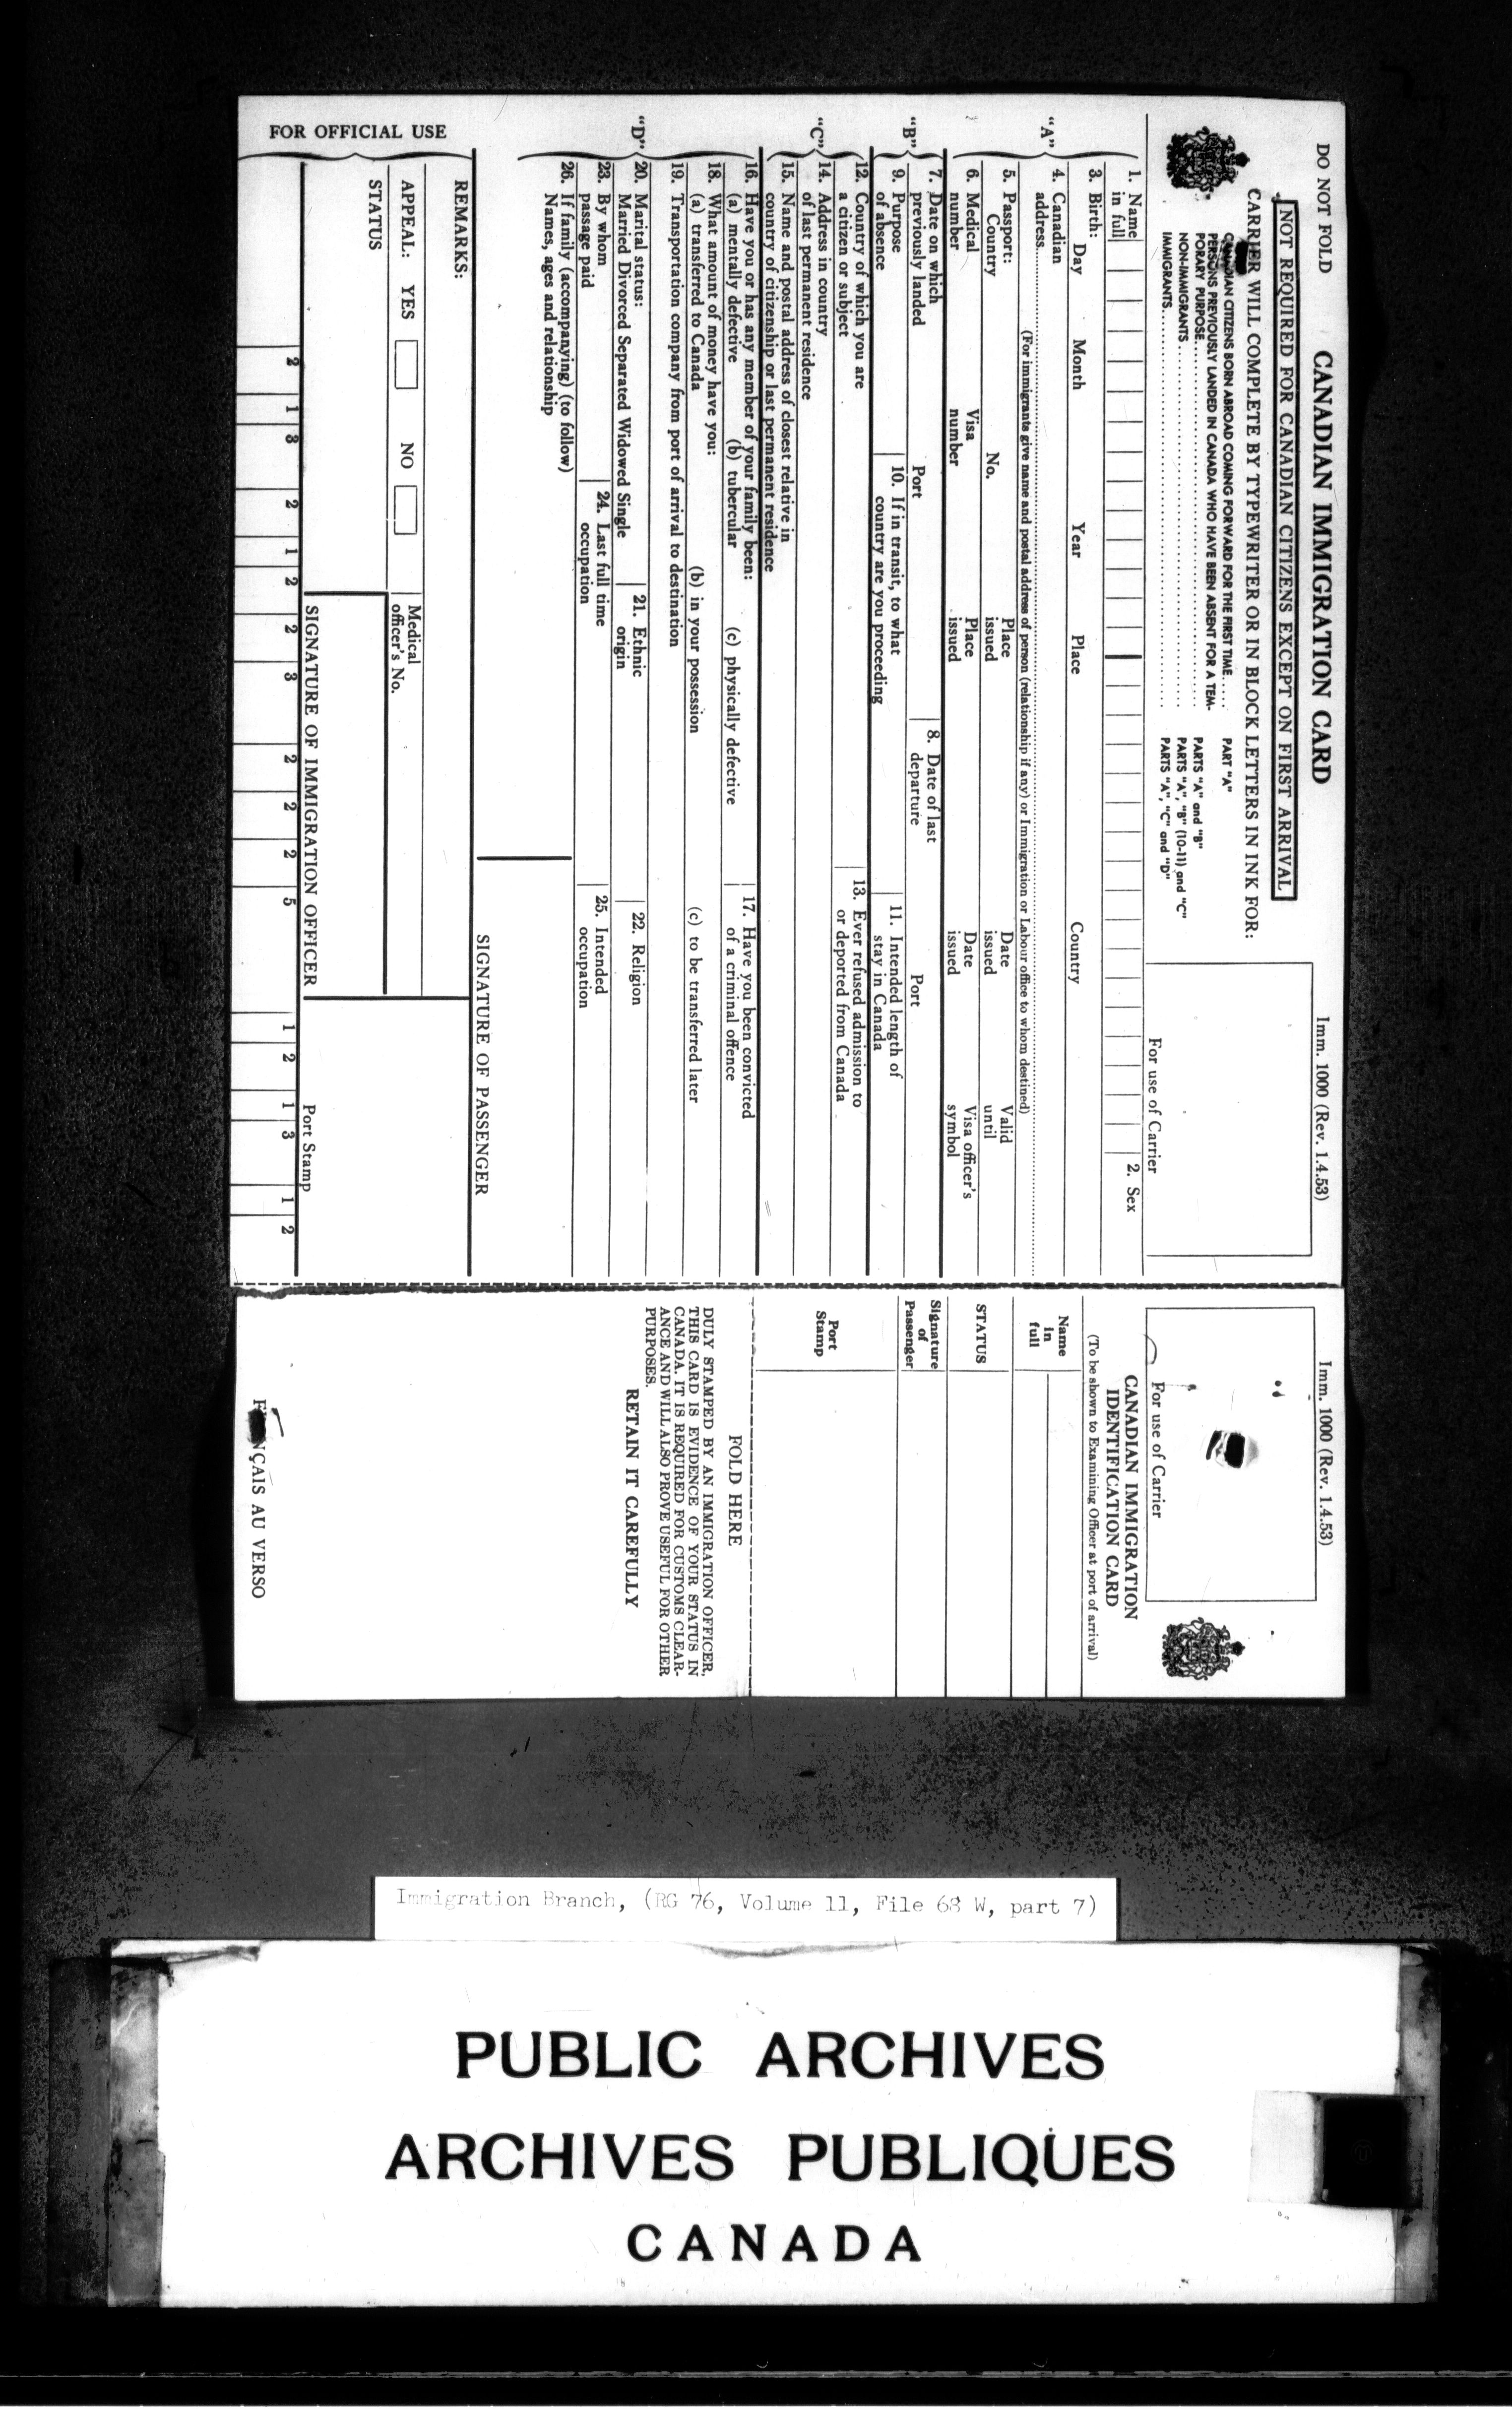 DO NOT FOLD
CANADIAN IMMIGRATION CARD
Imm. 1000 (Rev. 1.4.53)
NOT REQUIRED FOR CANADIAN CITIZENS EXCEPT ON FIRST ARRIVAL
CARRIER WILL COMPLETE BY TYPEWRITER OR IN BLOCK LETTERS IN INK FOR:
CITIZENS BORN ABROAD COMING FORWARD FOR THE FIRST TIME..... PART "A"
PERSONS PREVIOUSLY LANDED IN CANADA WHO HAVE BEEN ABSENT FOR A TEM-
PORARY PURPOSE..... PARTS "A" and "B"
NON-IMMIGRANTS..... PARTS "A", "B" (10-11) and "C"
IMMIGRANTS..... PARTS "A", "C" and "D"
For use of Carrier
"A"
1. Name
in full
2. Sex
3. Birth: Day Month Year Place Country
4. Canadian
address
(For immigrants give name and postal address of person (relationship if any) or Immigration or Labour office to whom destined)
5. Passport:
Country No. Place
issued Date
issued Valid
until
6. Medical
number Visa
number Place
issued Date
issued Visa officer's
symbol
"B"
7. Date on which
previously landed Port
8. Date of last
departure Port
9. Purpose
of absence
10. If in transit, to what
country are you proceeding
11. Intended length of
stay in Canada
"C"
12. Country of which you are
a citizen or subject
13. Ever refused admission to
or deported from Canada
14. Address in country
of last permanent residence
15. Name and postal address of closest relative in
country of citizenship or last permanent residence
"D"
16. Have you or has any member of your family been:
(a) mentally defective (b) tubercular (c) physically defective
17. Have you been convicted
of a criminal offence
18. What amount of money have you:
(a) transferred to Canada (b) in your possession (c) to be transferred later
19. Transportation company from port of arrival to destination
20. Marital status:
Married Divorced Separated Widowed Single
21. Ethnic
origin
22. Religion
23. By whom
passage paid
24. Last full time
occupation
25. Intended
occupation
26. If family (accompanying) (to follow)
Names, ages and relationship
SIGNATURE OF PASSENGER
FOR OFFICIAL USE
REMARKS:
APPEAL: YES NO
Medical
officer's No.
STATUS
SIGNATURE OF IMMIGRATION OFFICER
Port Stamp
2 1 3 2 1 2 2 3 2 2 2 5 1 2 1 3 1 2
Imm. 1000 (Rev. 1.4.53)
For use of Carrier
CANADIAN IMMIGRATION
IDENTIFICATION CARD
(To be shown to Examining Officer at port of arrival)
Name
in
full
STATUS
Signature
of
Passenger
Port
Stamp
FOLD HERE
DULY STAMPED BY AN IMMIGRATION OFFICER,
THIS CARD IS EVIDENCE OF YOUR STATUS IN
CANADA. IT IS REQUIRED FOR CUSTOMS CLEAR-
ANCE AND WILL ALSO PROVE USEFUL FOR OTHER
PURPOSES.
RETAIN IT CAREFULLY
AU VERSO
Immigration Branch, (RG 76, Volume 11, File 68 W, part 7)
PUBLIC ARCHIVES
ARCHIVES PUBLIQUES
CANADA